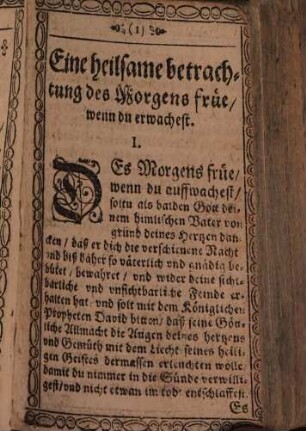 (1)
Eine heilsame betrach-
tung des Morgens früe/
wenn du erwachest.
I.
DEs Morgens früe/
wenn du auffwachest/
soltu als balden Gott dei-
nem himlischen Vater von
grund deines Hertzen dan-
cken/ daß er dich die verschienene Nacht
und biß daher so väterlich und gnädig be-
hütet/ bewahret/ und wider deine sicht-
barliche und unsichtbarliche Feinde er-
halten hat/ und solt mit dem Königlichen
Propheten David bitten/ daß seine Gött-
liche Allmacht die Augen deines hertzens
und Gemüth mit dem Liecht seines heili-
gen Geistes dermassen erleuchten wolle/
damit du nimmer in die Sünde verwilli-
gest/ und nicht etwan im tod entschlaffest.
Es